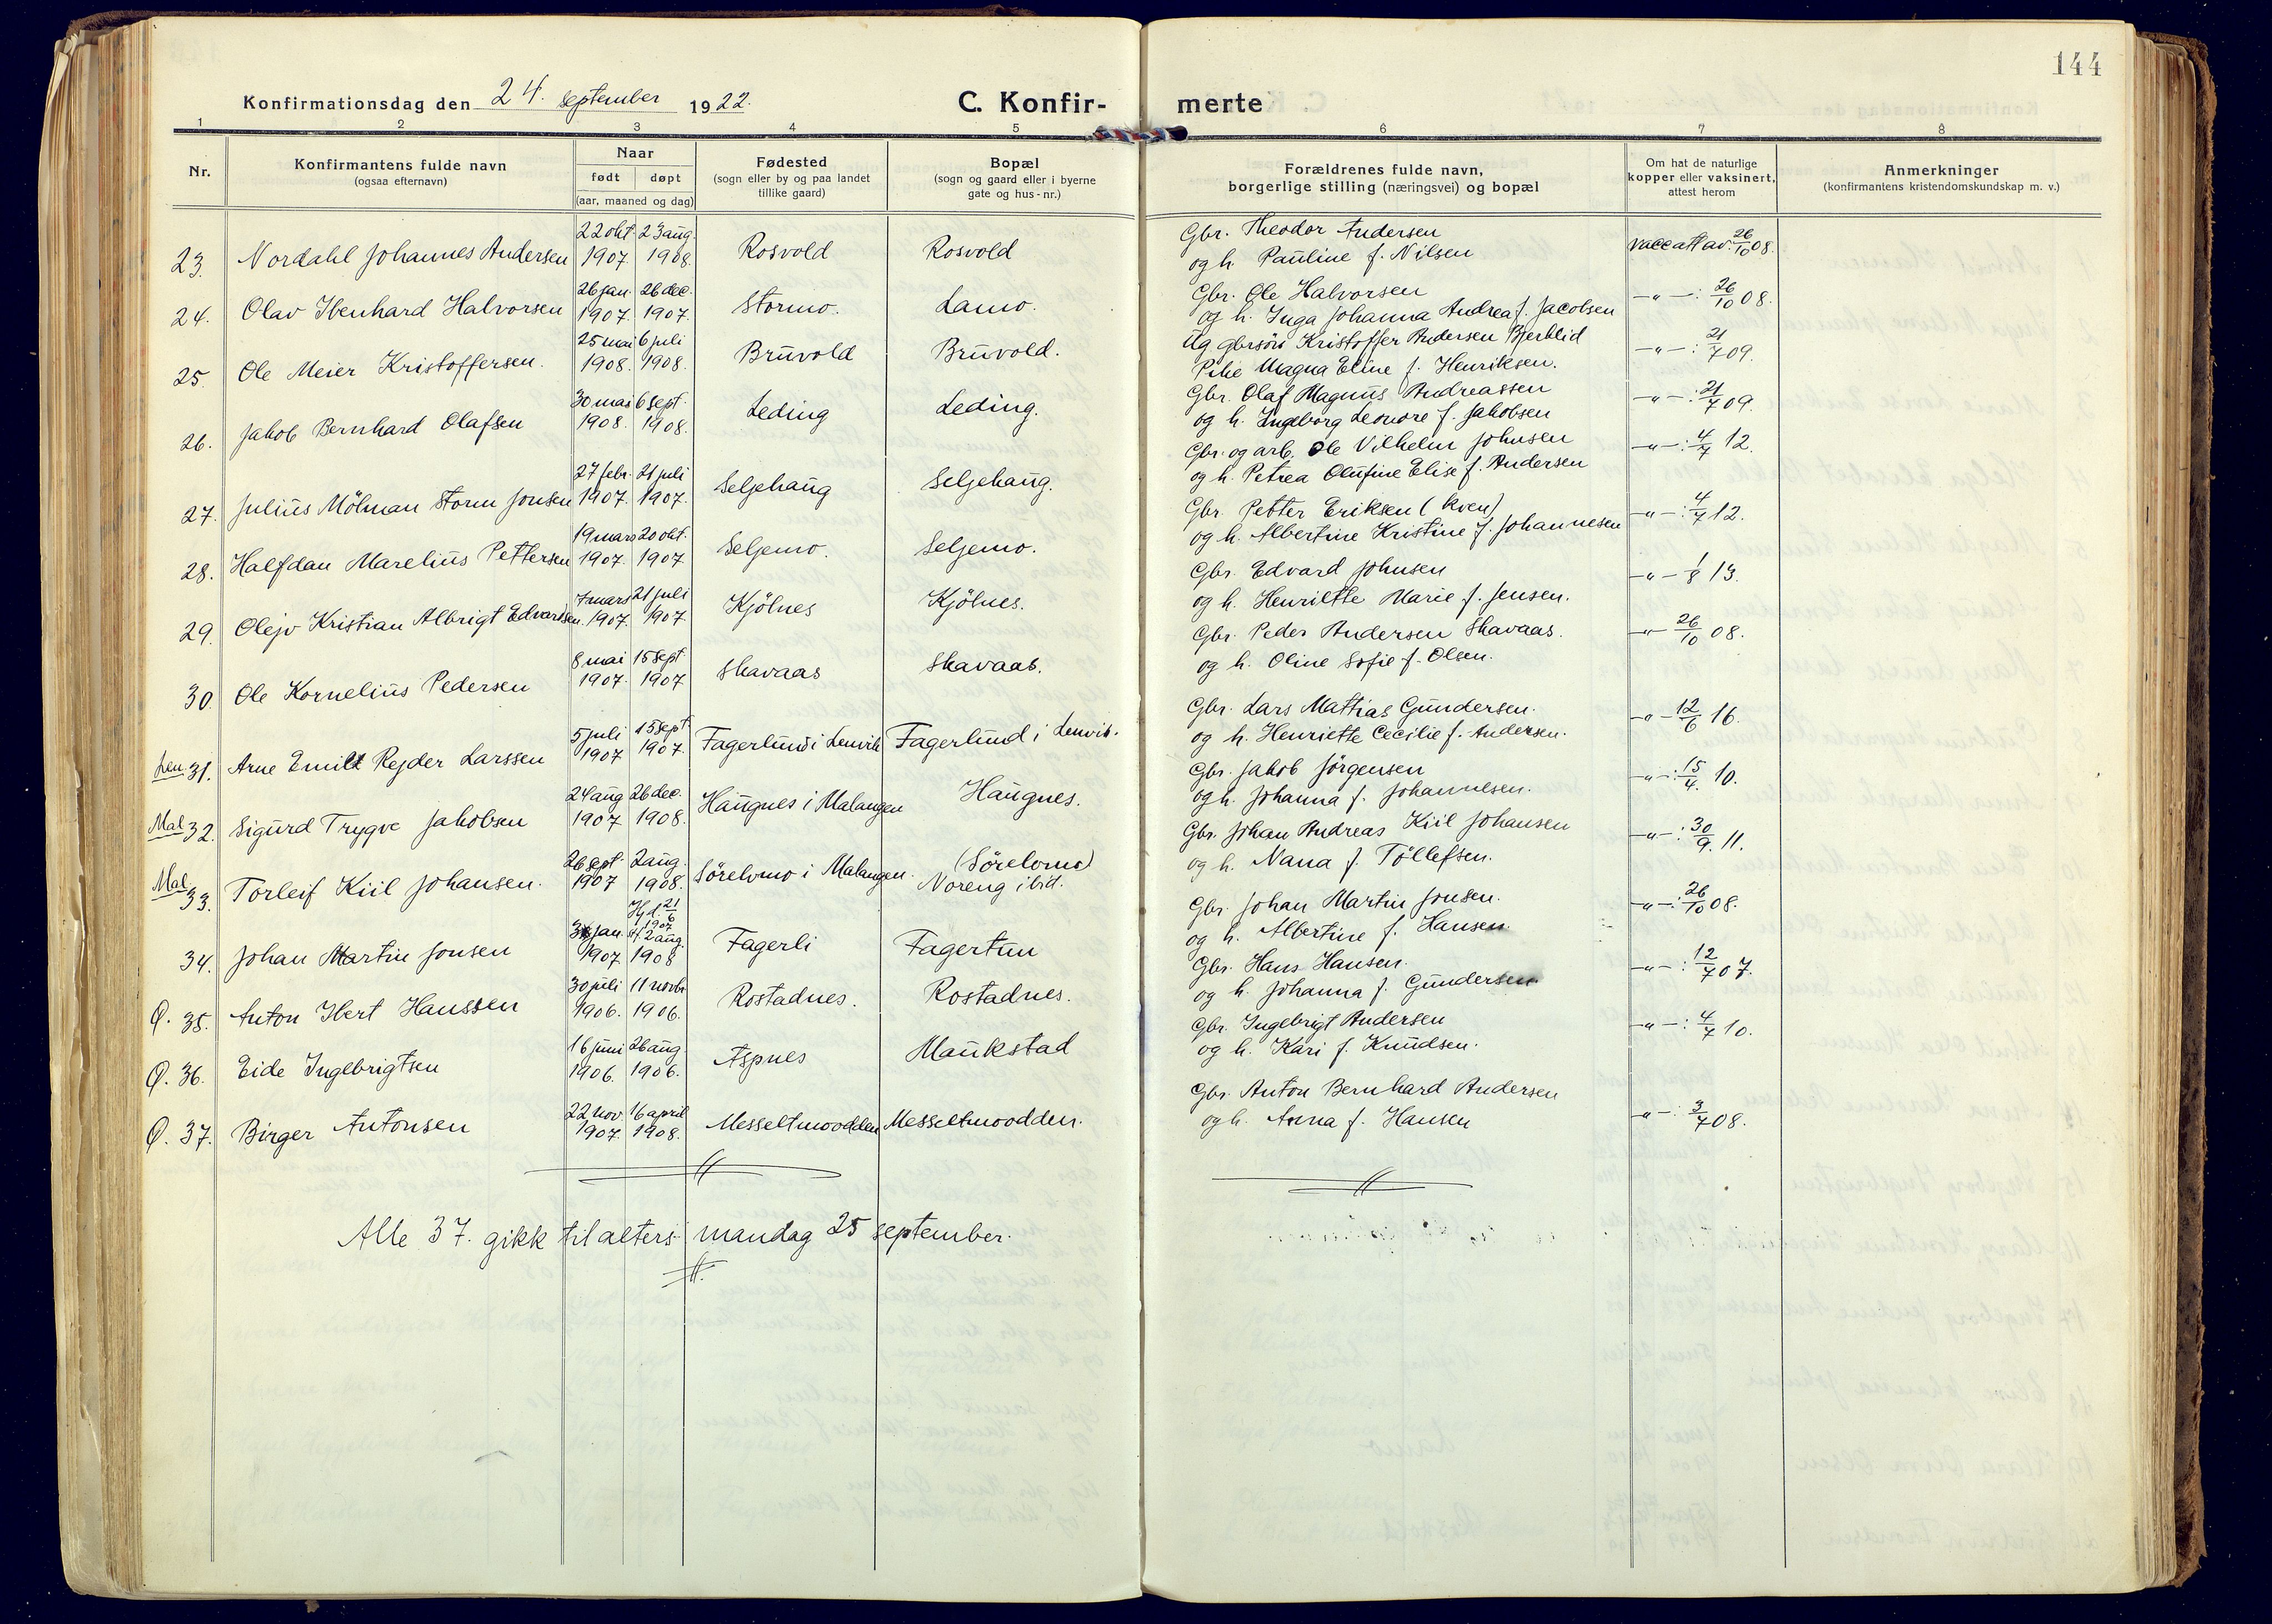 144
Konfirmationsdag den 24. september 1922.
C. Konfir- merte
1 2 3 4 5 6 7 8
Nr.
Konfirmantens fulde navn
(ogsaa efternavn)
Naar
født døpt
(aar, maaned og dag)
Fødested
(sogn eller by og paa landet
tillike gaard)
Bopæl
(sogn og gaard eller i byerne
gate og hus-nr.)
Forældrenes fulde navn,
borgerlige stilling (næringsvei) og bopæl
Om hat de naturlige
kopper eller vaksinert,
attest herom
Anmerkninger
(konfirmantens kristendomskundskap m. v.)
22 okt. 23 aug. Gbr. Theodor Andersen
23. Nordahl Johannes Andersen 1907 1908. Rosvold Rosvold og h. Pauline f. Nilsen vacc att av. 26/10 08.
26 jan. 26 dec. Gbr. Ole Halvorsen
24. Olav Ibenhard Halvorsen 1907. 1907. Stormo. Lamo. og h. Inga Johanna Andrea f. Jacobsen —"— : 26/10 08.
25 mai 6 juli Ug gbrsön Kristoffer Andersen Bjerklid
25. Ole Meier Kristoffersen. 1908. 1908. Bruvold Bruvold. Pike Magna Eline f. Henriksen. —"— : 21/7 09.
30 mai 6 sept. Gbr. Olaf Magnus Andreassen
26. Jakob Bernhard Olafsen 1908. 1908. Leding Leding. og h. Ingeborg Leonore f. Jakobsen —"— : 21/7 09.
27 febr. 21 juli Gbr. og arb. Ole Vilhelm Johnsen
27. Julius Mölman Storm Jonsen 1907. 1907. Seljehaug Seljehaug. og h. Petrea Olufine Elise f. Andersen —"— : 4/7 12.
19 mars 20 okt. Gbr. Petter Eriksen (kven)
28. Halfdan Marelius Pettersen 1907. 1907 Seljemo. Seljemo. og h. Albertine Kristine f. Johannesen —"— : 4/7 12.
7 mars 21 juli Gbr. Edvard Johnsen
29. Olejv Kristian Albrigt Edvardsen. 1907. 1907. Kjölnes Kjölnes. og h. Henriette Marie f. Jensen. —"— 1/8 13.
8 mai 15 sept Gbr. Peder Andersen Skavaas.
30. Ole Kornelius Pedersen 1907. 1907 Skavaas Skavaas. og h. Oline Sofie f. Olsen. —"— 26/10 08.
5 juli 15 sept. Gbr. Lars Mattias Gundersen.
Len. 31. Arne Emil Rejder Larssen 1907 1907. Fagerlund i Lenvik Fagerlund i Lenvik. og h. Henriette Cecilie f. Andersen. —"— 12/6 16.
24 aug 26 dec. Gbr. Jakob Jörgensen
Mal 32. Sigurd Trygve Jakobsen 1907 1908. Haugnes i Malangen Haugnes. og h. Johanna f. Johannesen. —"— : 15/4. 10.
26 sept. 2 aug. (Sörelvmo) Gbr. Johan Andreas Kiil Johansen
Mal 33. Torleif Kiil Johansen. 1907 1908. Sörelvmo i Malangen. Noreng ibid. og h. Nana f. Tollefsen. —"— : 30/9. 11.
Hj. d. 21/6 1907
jan. st. 2 aug. Gbr. Johan Martin Jonsen.
34. Johan Martin Jonsen 1907. 1908 Fagerli Fagertun og h. Albertine f. Hansen —"— : 26/10 08.
30 juli 11 novbr Gbr. Hans Hansen.
Ø. 35. Anton Ibert Hanssen 1906. 1906. Rostadnes. Rostadnes. og h. Johanna f. Gundersen. —"— : 12/7 07.
16 juni 26 aug. Gbr. Ingebrigt Andersen
Ø. 36. Eide Ingebrigtsen 1906. 1906. Aspnes Maukstad og h. Kari f. Knudsen. —"— : 4/7 10.
22 nov. 16 april Gbr. Anton Bernhard Andersen
Ø. 37. Birger Antonsen 1907. 1908. Messeltmoodden Messeltmoodden. og h. Anna f. Hansen —"— : 3/7 08.
Alle 37. gikk til alters mandag 25 september.